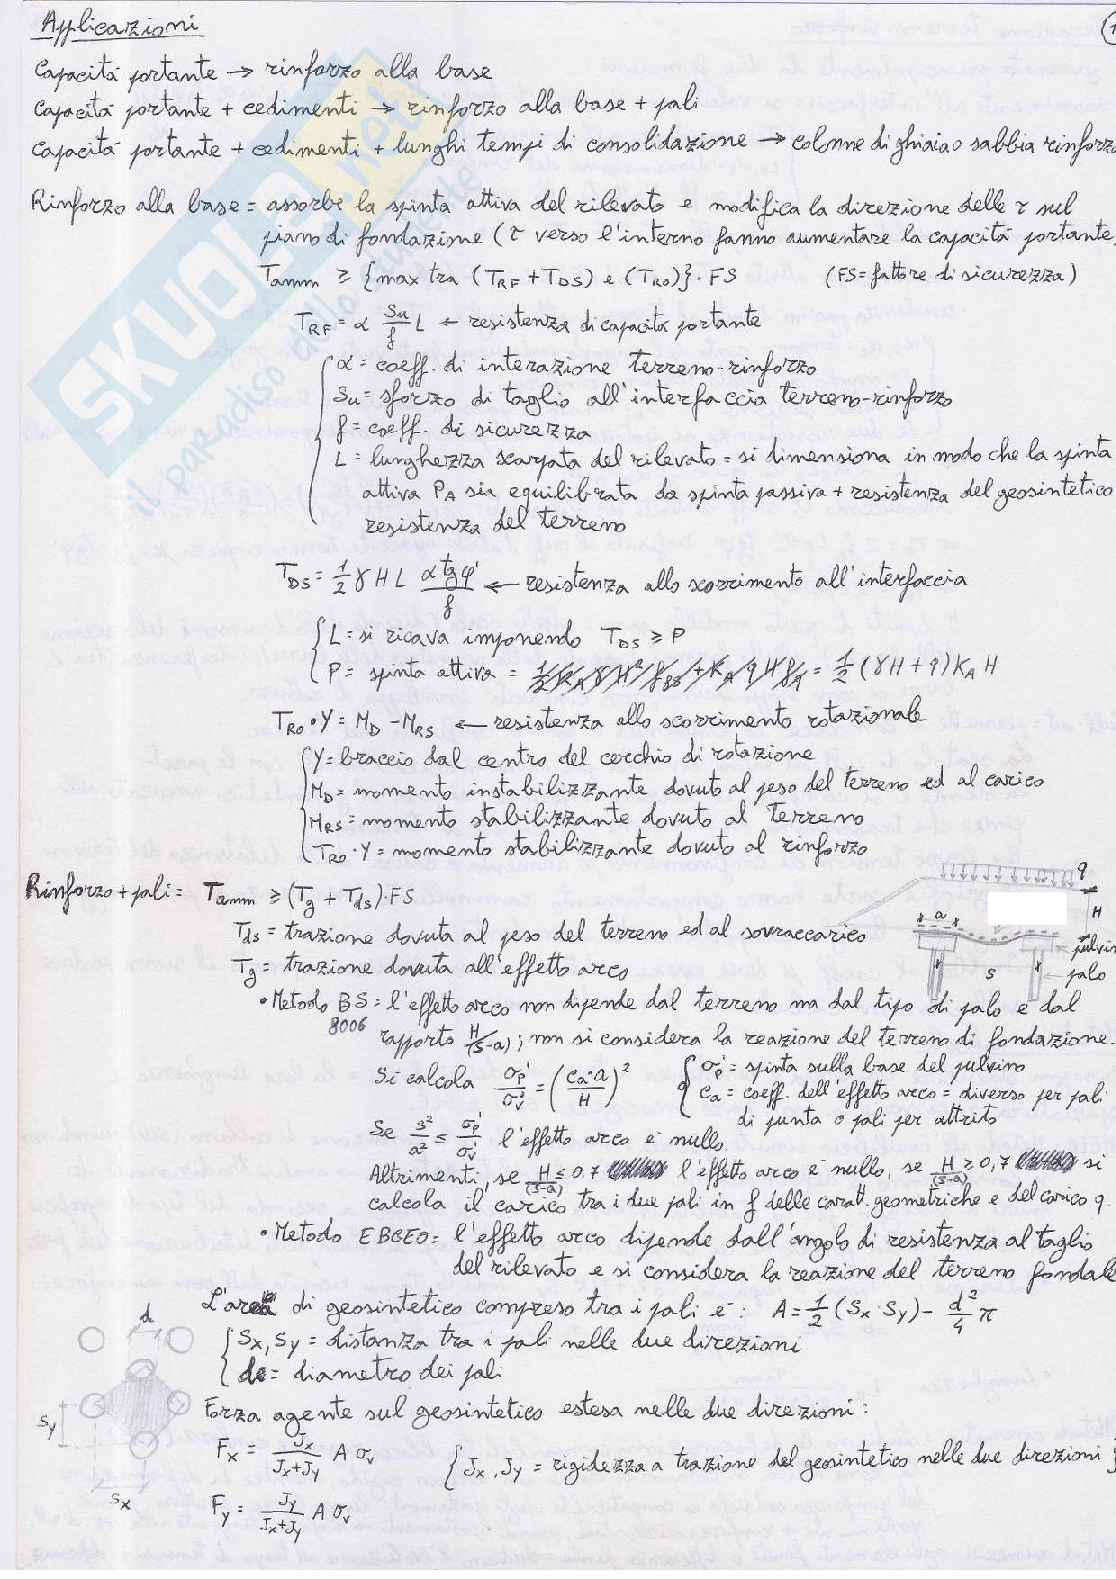 Applicazioni
1
Capacità portante → rinforzo alla base
Capacità portante + cedimenti → rinforzo alla base + pali
Capacità portante + cedimenti + lunghi tempi di consolidazione → colonne di ghiaia o sabbia rinforz
Rinforzo alla base = assorbe la spinta attiva del rilevato e modifica la direzione delle τ sul
piano di fondazione (τ verso l'interno fanno aumentare la capacità portante
Tamm ≥ {max tra (TRF + TDS) e (TRO)} · FS (FS = fattore di sicurezza)
TRF = α Su/f L ← resistenza di capacità portante
α = coeff. di interazione terreno-rinforzo
Su = sforzo di taglio all'interfaccia terreno-rinforzo
f = coeff. di sicurezza
L = lunghezza scarpata del rilevato = si dimensiona in modo che la spinta
attiva PA sia equilibrata da spinta passiva + resistenza del geosintetico
resistenza del terreno
TDS = 1/2 γ H L α tg φ'/f ← resistenza allo scorrimento all'interfaccia
L = si ricava imponendo TDS ≥ P
P = spinta attiva = 1/2 (γH + q) KA H
TRO · Y = MD - MRS ← resistenza allo scorrimento rotazionale
Y = braccio dal centro del cerchio di rotazione
MD = momento instabilizzante dovuto al peso del terreno ed al carico
MRS = momento stabilizzante dovuto al terreno
TRO · Y = momento stabilizzante dovuto al rinforzo
Rinforzo + pali = Tamm ≥ (Tg + Tds) · FS
Tds = trazione dovuta al peso del terreno ed al sovraccarico
Tg = trazione dovuta all'effetto arco
q
H
a
s
pulvin
palo
• Metodo BS 8006 = l'effetto arco non dipende dal terreno ma dal tipo di palo e dal
rapporto H/(s-a); non si considera la reazione del terreno di fondazione.
Si calcola σp'/σv' = (ca·a/H)² { σp' = spinta sulla base del pulvino
ca = coeff. dell'effetto arco = diverso per pali
di punta o pali per attrito
Se s²/a² ≤ σp'/σv' l'effetto arco è nullo.
Altrimenti, se H/(s-a) ≤ 0,7 l'effetto arco è nullo, se H/(s-a) ≥ 0,7 si
calcola il carico tra i due pali in f delle caratt. geometriche e del carico q.
• Metodo EBGEO = l'effetto arco dipende dall'angolo di resistenza al taglio
del rilevato e si considera la reazione del terreno fondale
L'area di geosintetico compreso tra i pali è: A = 1/2 (Sx · Sy) - d²/4 π
Sx, Sy = distanza tra i pali nelle due direzioni
d = diametro dei pali
d
Sy
Sx
Forza agente sul geosintetico estesa nelle due direzioni:
Fx = Jx/(Jx+Jy) A σv { Jx, Jy = rigidezza a trazione del geosintetico nelle due direzioni }
Fy = Jy/(Jx+Jy) A σv
SKUOLA.net
il paradiso dello studente